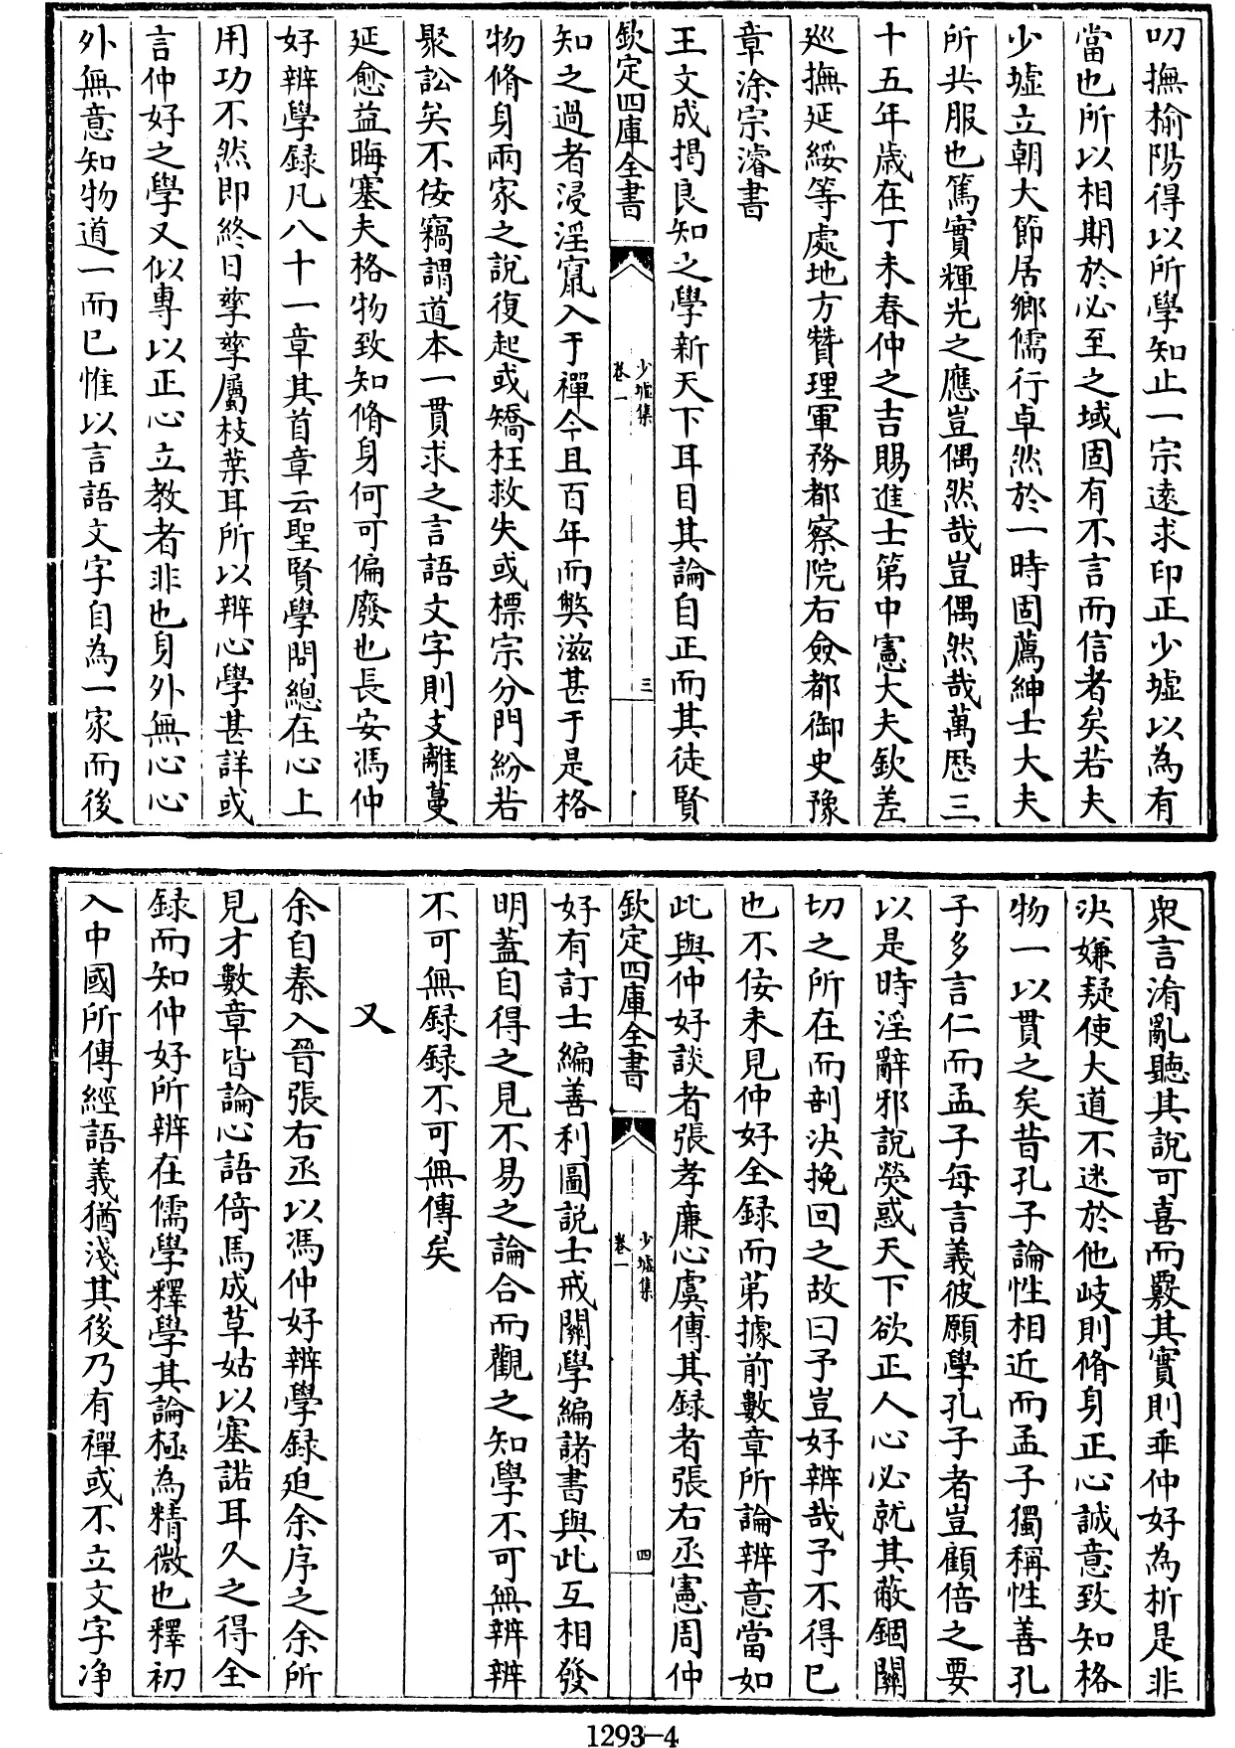 叨撫榆陽得以所學知止一宗遠求印正少墟以為有
當也所以相期於必至之域固有不言而信者矣若夫
少墟立朝大節居鄉儒行卓然於一時固薦紳士大夫
所共服也篤實輝光之應豈偶然哉豈偶然哉萬厯三
十五年歲在丁未春仲之吉賜進士第中憲大夫欽差
廵撫延綏等處地方贊理軍務都察院右僉都御史豫
章涂宗濬書
王文成揭良知之學新天下耳目其論自正而其徒賢
欽定四庫全書
少墟集
卷一
三
知之過者浸淫竄入于禪今且百年而獘滋甚于是格
物脩身兩家之說復起或矯枉救失或標宗分門紛若
聚訟矣不佞竊謂道本一貫求之言語文字則支離蔓
延愈益晦塞夫格物致知脩身何可偏廢也長安馮仲
好辨學録凡八十一章其首章云聖賢學問總在心上
用功不然即終日孳孳屬枝葉耳所以辨心學甚詳或
言仲好之學又似專以正心立教者非也身外無心心
外無意知物道一而已惟以言語文字自為一家而後
衆言淆亂聽其說可喜而覈其實則乖仲好為析是非
決嫌疑使大道不迷於他歧則脩身正心誠意致知格
物一以貫之矣昔孔子論性相近而孟子獨稱性善孔
子多言仁而孟子每言義彼願學孔子者豈顧倍之要
以是時淫辭邪說熒惑天下欲正人心必就其蔽錮關
切之所在而剖決挽回之故曰予豈好辨哉予不得已
也不佞未見仲好全録而苐據前數章所論辨意當如
此與仲好談者張孝廉心虞傳其録者張右丞憲周仲
欽定四庫全書
少墟集
卷一
四
好有訂士編善利圖說士戒關學編諸書與此互相發
明蓋自得之見不易之論合而觀之知學不可無辨辨
不可無録録不可無傳矣
又
余自秦入晉張右丞以馮仲好辨學録廹余序之余所
見才數章皆論心語倚馬成草姑以塞諾耳久之得全
録而知仲好所辨在儒學釋學其論極為精微也釋初
入中國所傳經語義猶淺其後乃有禪或不立文字净
1293-4